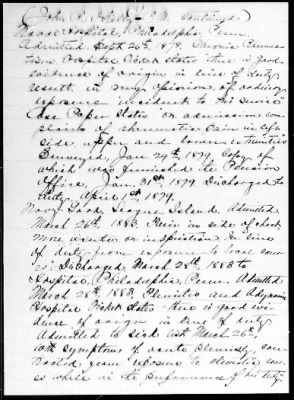 (John P. M. Continued)
Naval Hospital, Philadelphia, Penn.
Admitted Sept. 26th 1878. Chronic Rheuma-
tism. Hospital Ticket states "there is good
evidence of origin in line of duty
result, in my opinion, of ordinary
exposure incident to the service"
Case Paper states "on admission com-
plains of rheumatic pain in left
side upper and lower extremities"
Surveyed, Jan. 29th, 1879, Copy of
which was furnished the Pension
Office, Jan. 31st, 1879. Discharged to
duty April 1st 1879.
Navy Yard League Island. Admitted
March 26th, 1883. Pain in side of chest
more acute on inspiration. In line
of duty from exposure to
Discharged March 28th 1883 to
Hospital, Philadelphia, Penn. Admitted
March 28th, 1883. Pleuritis
Hospital Ticket states "there is good evi-
dence of origin in line of duty
Admitted to sick list March 26th
with symptoms of acute Pleurisy, con-
tracted from exposure to climatic
while in the performance of his duty